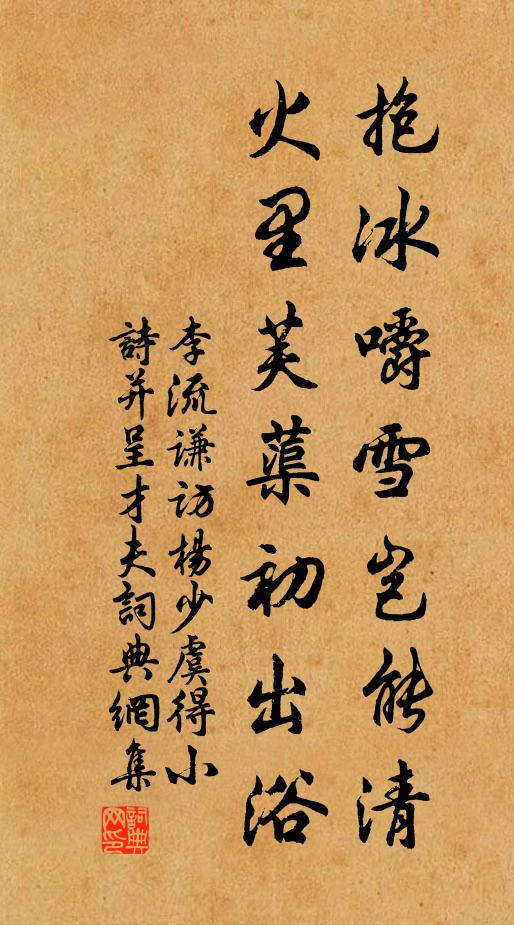 抱冰嚼雪岂能清
火里芙蕖初出浴
李流谦访杨少虞得小
詩并呈才夫詞典網集
詞典网印